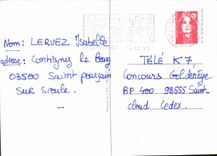 Nom: LERVEZ Isabelle
adresse: Contigny le Bourg
03500 Saint pourçain
SUR Sioule.
TÉLÉ K7,
Concours GoldenEye
BP 400 92555 Saint
cloud Cedex.